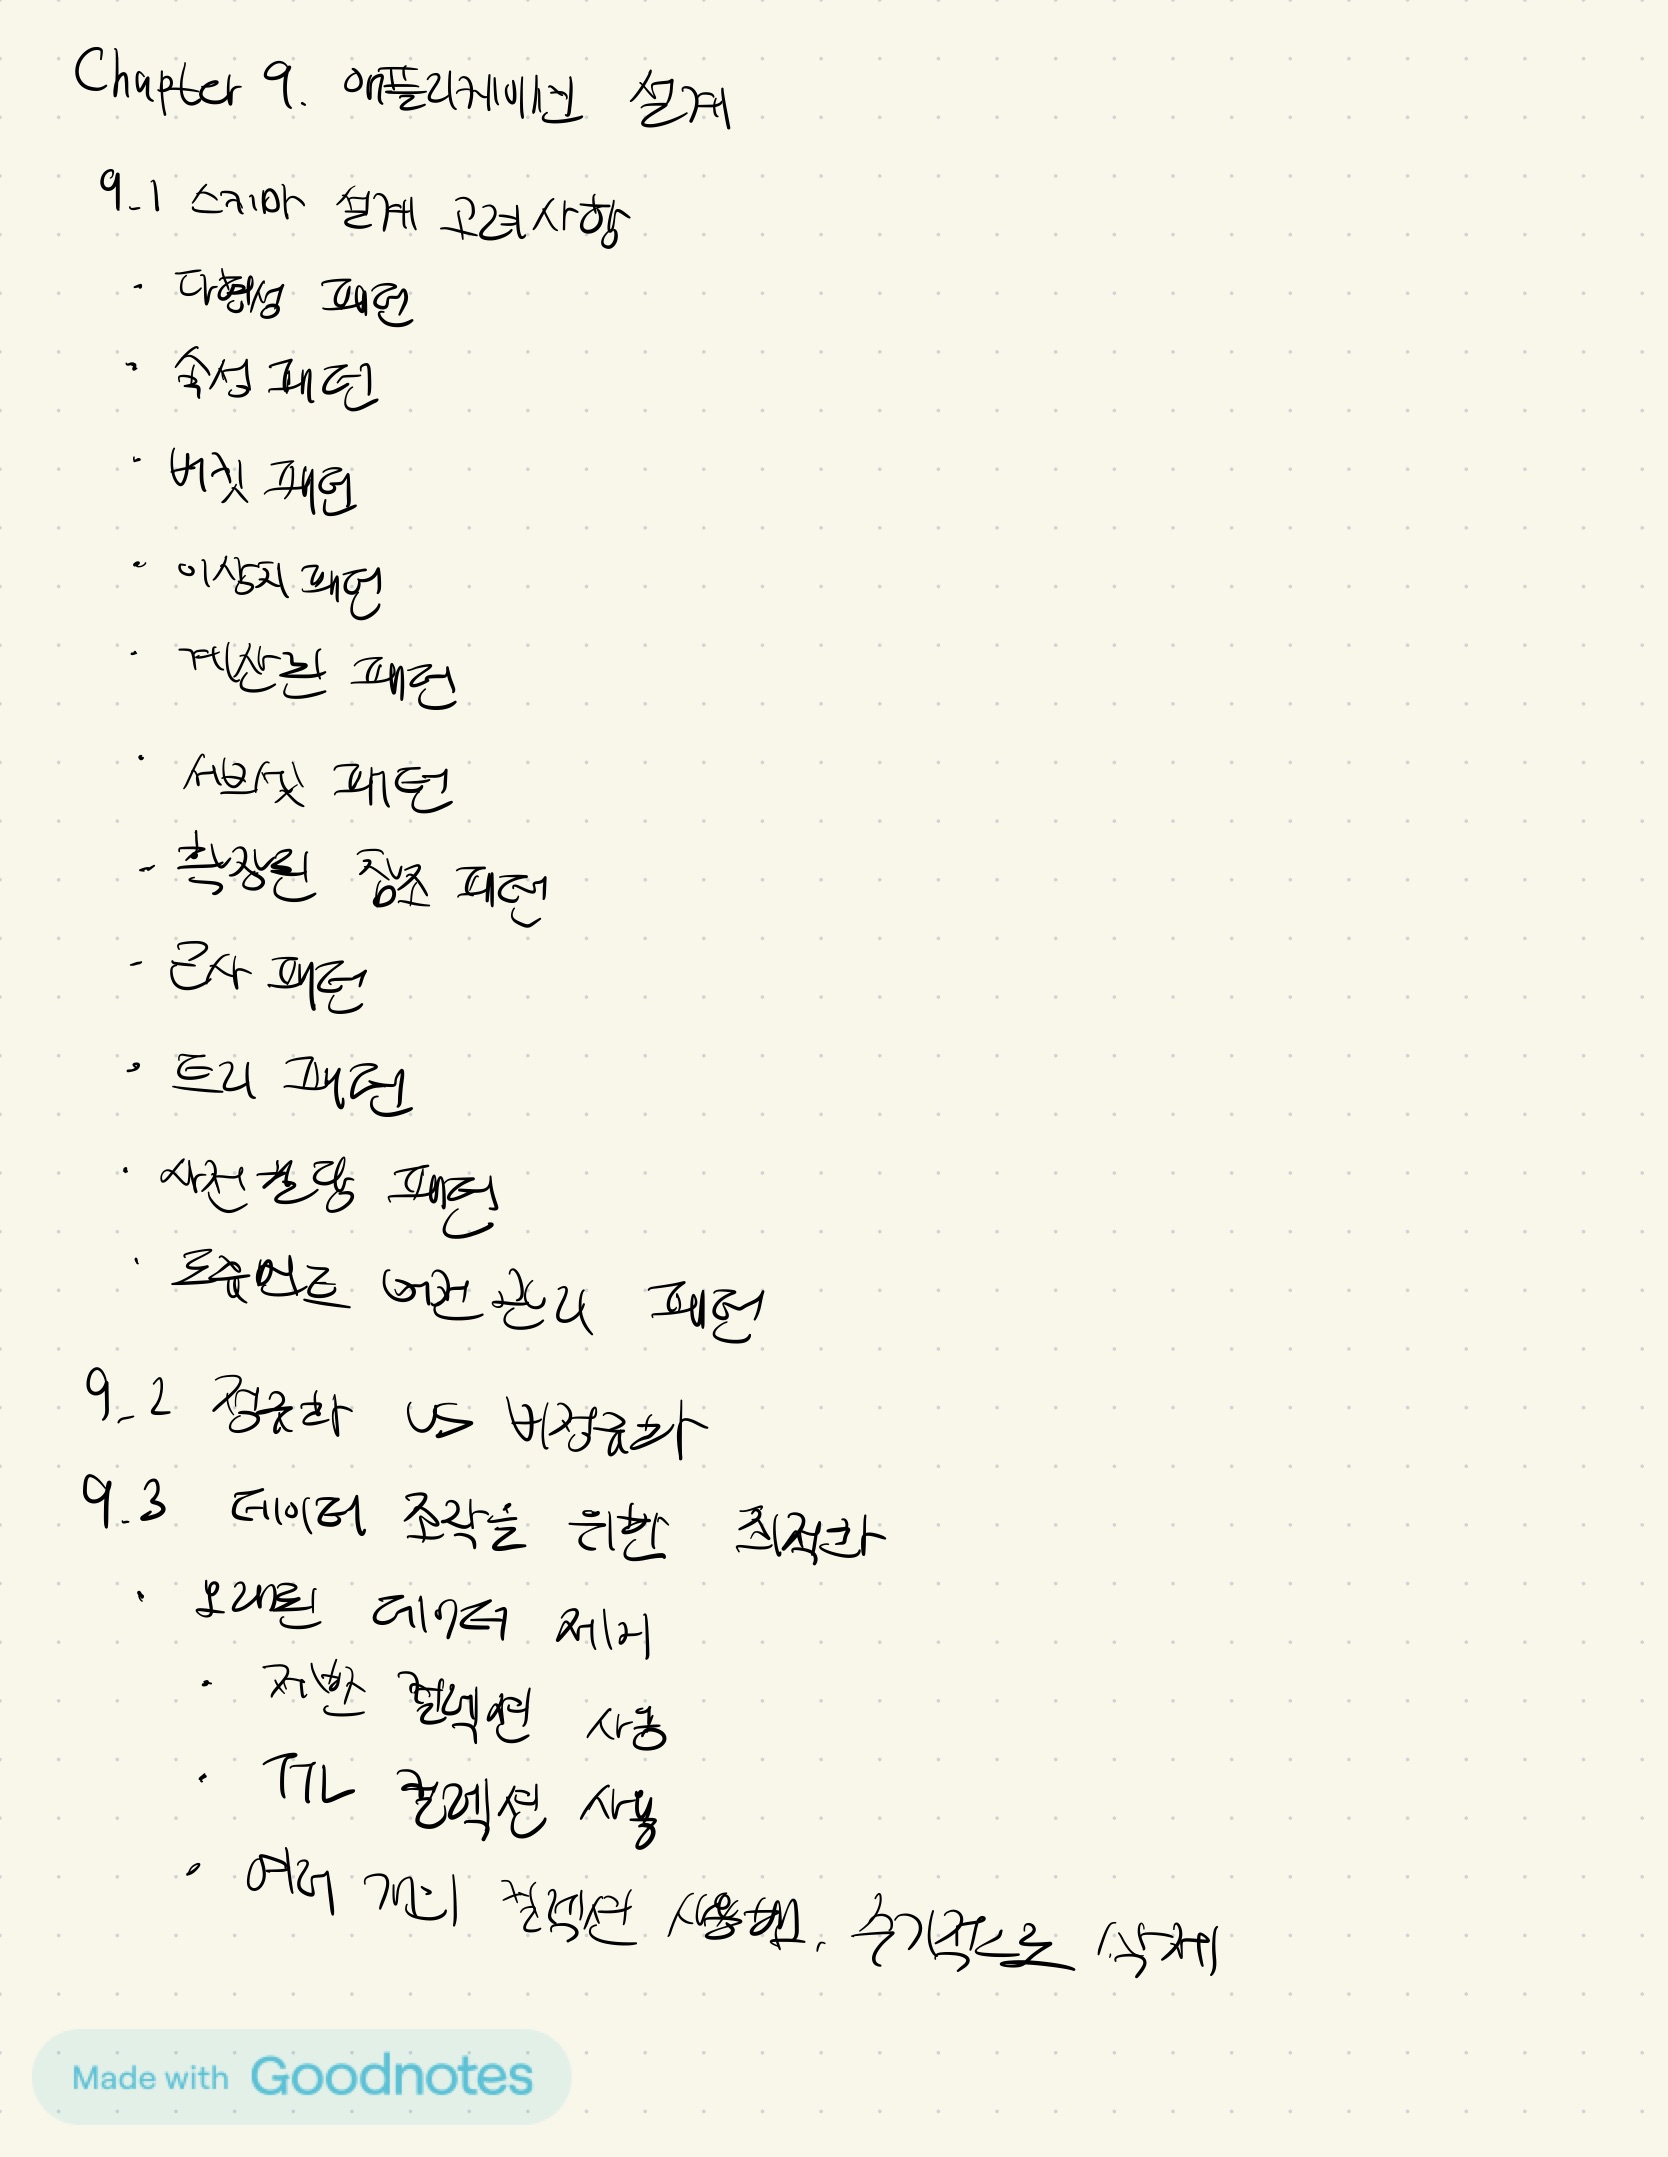 Chapter 9. 애플리케이션 설계
9.1 스키마 설계 고려사항
· 다형성 패턴
· 속성 패턴
· 버킷 패턴
· 이상치 패턴
· 계산된 패턴
· 서브셋 패턴
· 확장된 참조 패턴
· 근사 패턴
· 트리 패턴
· 사전 할당 패턴
· 도큐먼트 버전 관리 패턴
9.2 정규화 vs 비정규화
9.3 데이터 조작을 위한 최적화
· 오래된 데이터 제거
· 제한 컬렉션 사용
· TTL 컬렉션 사용
· 여러 개의 컬렉션 사용, 주기적으로 삭제
Made with Goodnotes